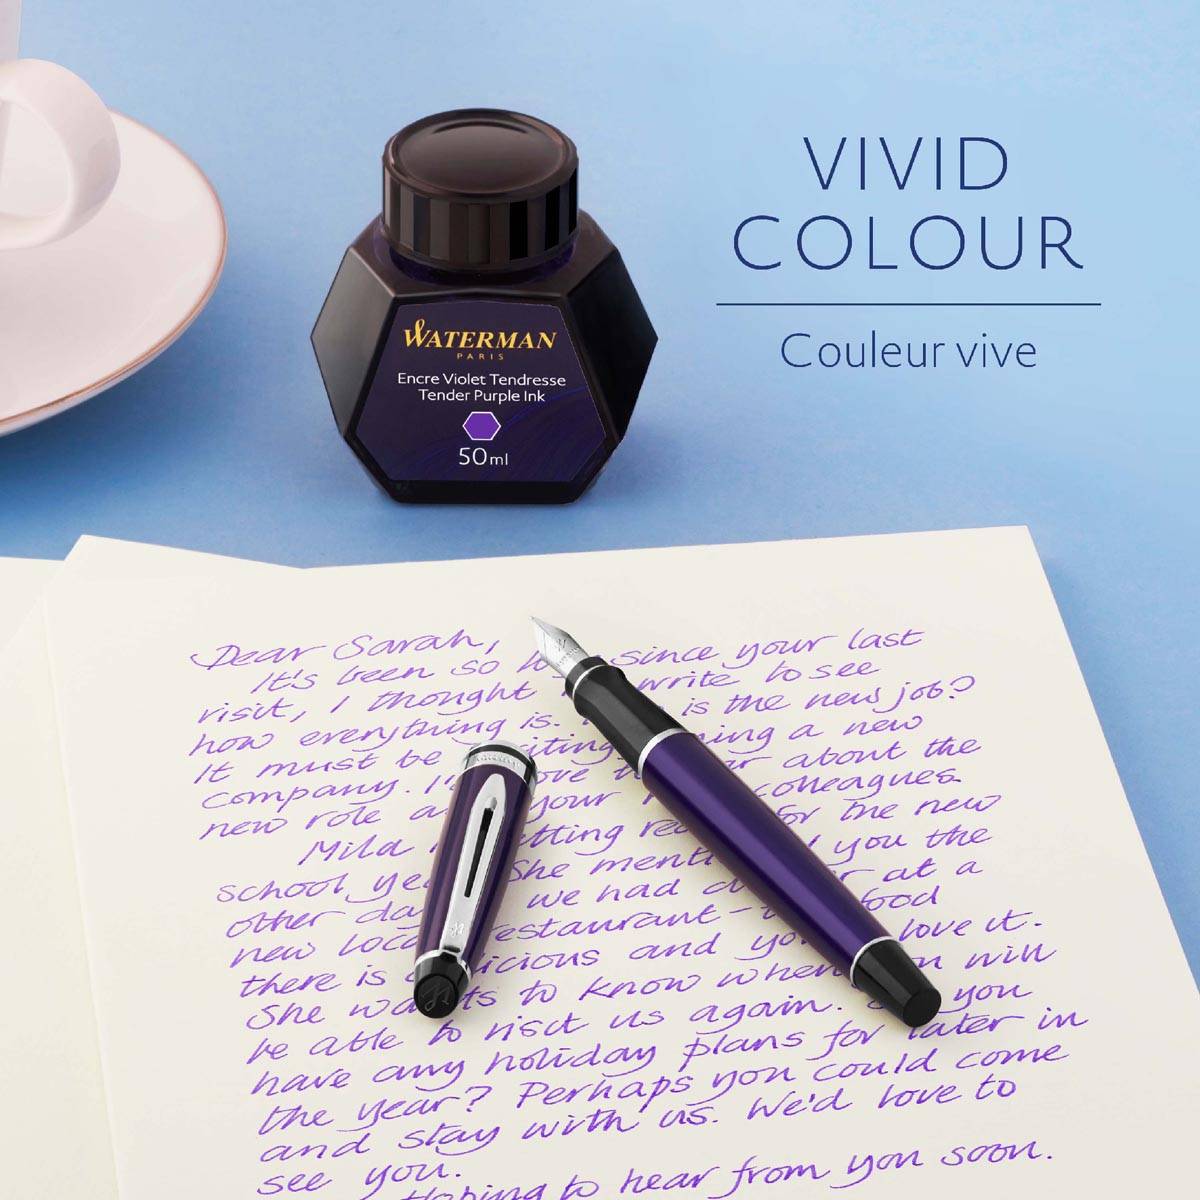 VIVID
COLOUR
Couleur vive
WATERMAN
PARIS
Encre Violet Tendresse
Tender Purple Ink
50ml
Dear Sarah,
It's been so since your last
visit, I thought write to see
how everything is. is the new job?
It must be a new
company. about the
new role your colleagues
Mila for the new
school She you the
other we had at a
new food
there is and love it.
She to know when will
be able to visit us again. you
have any holiday plans for later in
the year? Perhaps you could come
and stay with us. We'd love to
see you.
Hoping to hear from you soon.